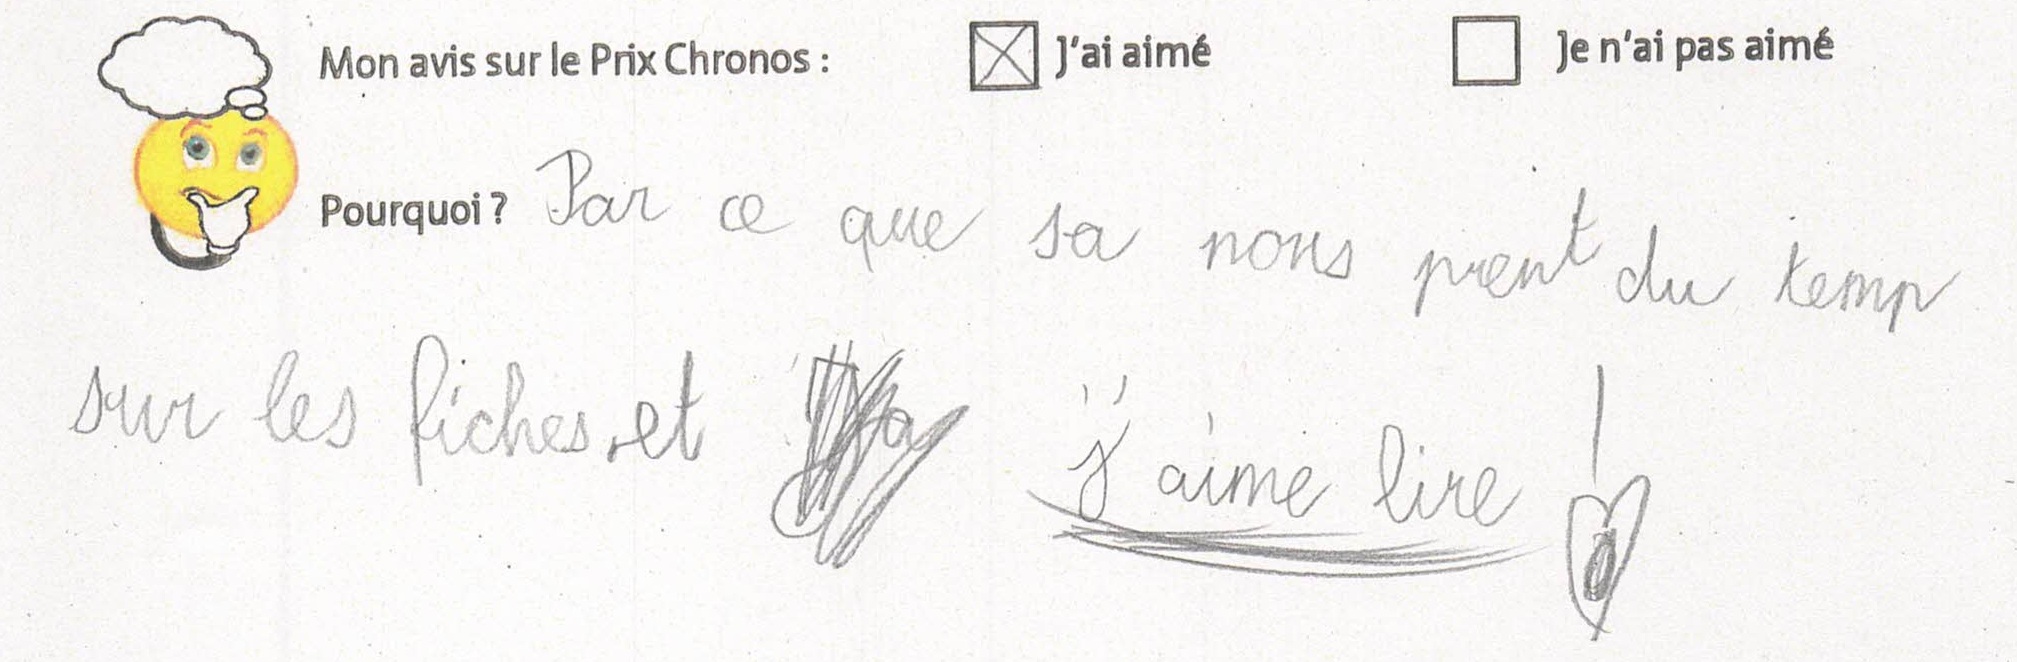 Mon avis sur le Prix Chronos : J'ai aimé Je n'ai pas aimé
Pourquoi ? Par ce que sa nous prent du temp
sur les fiches, et j'aime lire !